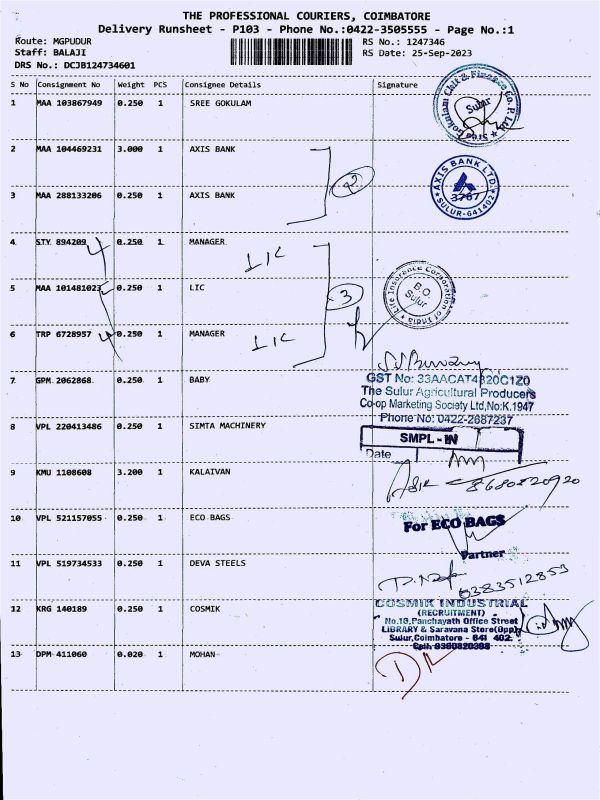 THE PROFESSIONAL COURIERS, COIMBATORE
Delivery Runsheet - P103 - Phone No.:0422-3505555 - Page No.:1
Route: MGPUDUR RS No.: 1247346
Staff: BALAJI RS Date: 25-Sep-2023
DRS No.: DCJB124734601
S No Consignment No Weight PCS Consignee Details Signature
1 MAA 103867949 0.250 1 SREE GOKULAM
Gokulam Chit & Finance Co. P. Ltd.
Sulur
2 MAA 104469231 3.000 1 AXIS BANK
2
AXIS BANK LTD.
3767
SULUR-641402
3 MAA 288133206 0.250 1 AXIS BANK
4 STY 894209 0.250 1 MANAGER
LIC
5 MAA 101481023 0.250 1 LIC
3
Life Insurance Corporation of India
B.O.
Sulur
6 TRP 6728957 0.250 1 MANAGER
LIC
7 GPM 2062868 0.250 1 BABY
GST No: 33AACAT4820C1Z0
The Sulur Agricultural Producers
Co-op Marketing Society Ltd,No:K.1947
Phone No: 0422-2687237
8 VPL 220413486 0.250 1 SIMTA MACHINERY
SMPL - IN
Date
9 KMU 1108608 3.200 1 KALAIVAN
8680820920
10 VPL 521157055 0.250 1 ECO BAGS
For ECO BAGS
Partner
11 VPL 519734533 0.250 1 DEVA STEELS
6383512853
12 KRG 140189 0.250 1 COSMIK
COSMIK INDUSTRIAL
(RECRUITMENT)
No.10,Panchayath Office Street
LIBRARY & Saravana Store(Opp)
Sulur,Coimbatore - 641 402.
13 DPM 411060 0.020 1 MOHAN